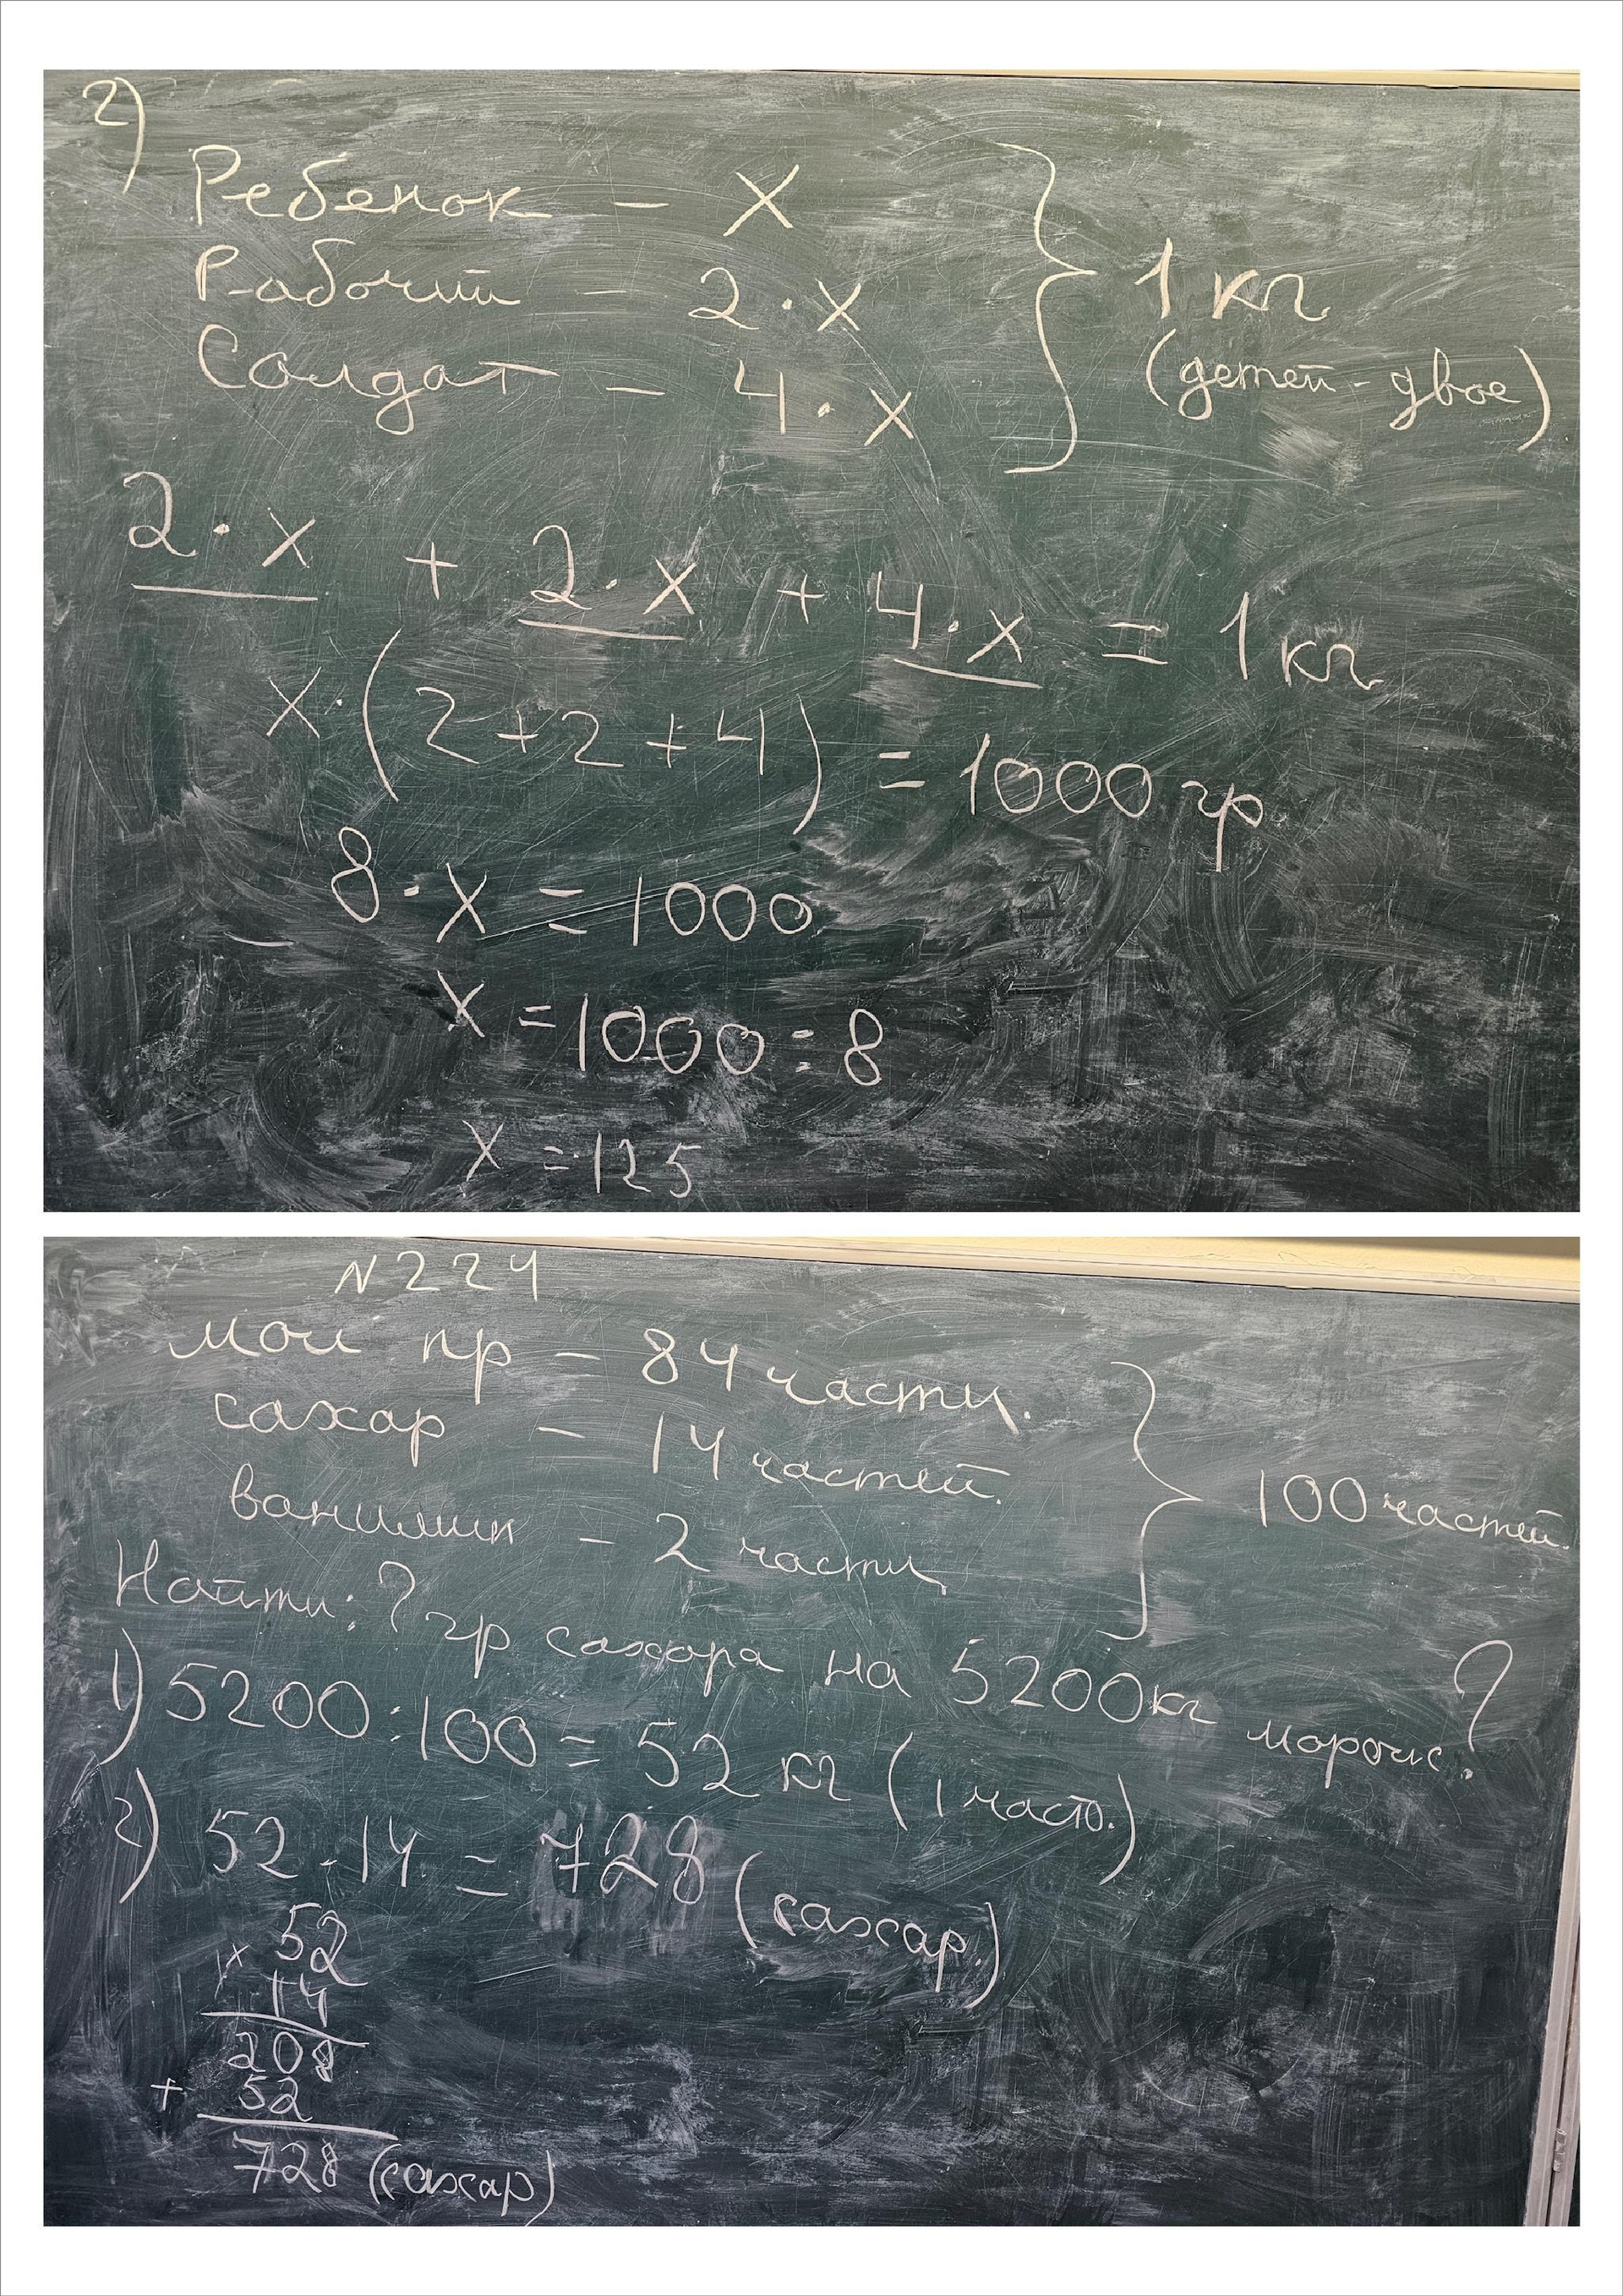 2)
Ребенок – x
Рабочий – 2·x
Солдат – 4·x
1 кг
(детей - двое)
2·x + 2·x + 4·x = 1 кг
x·(2+2+4) = 1000 гр
8·x = 1000
x = 1000:8
x = 125
N224
мол пр – 84 части.
сахар – 14 частей.
ванилин – 2 части
100 частей.
Найти: ? гр сахара на 5200кг морож. ?
1) 5200:100 = 52 кг (1 часть.)
2) 52·14 = 728 (сахар.)
× 52
14
208
+ 52
728 (сахар)